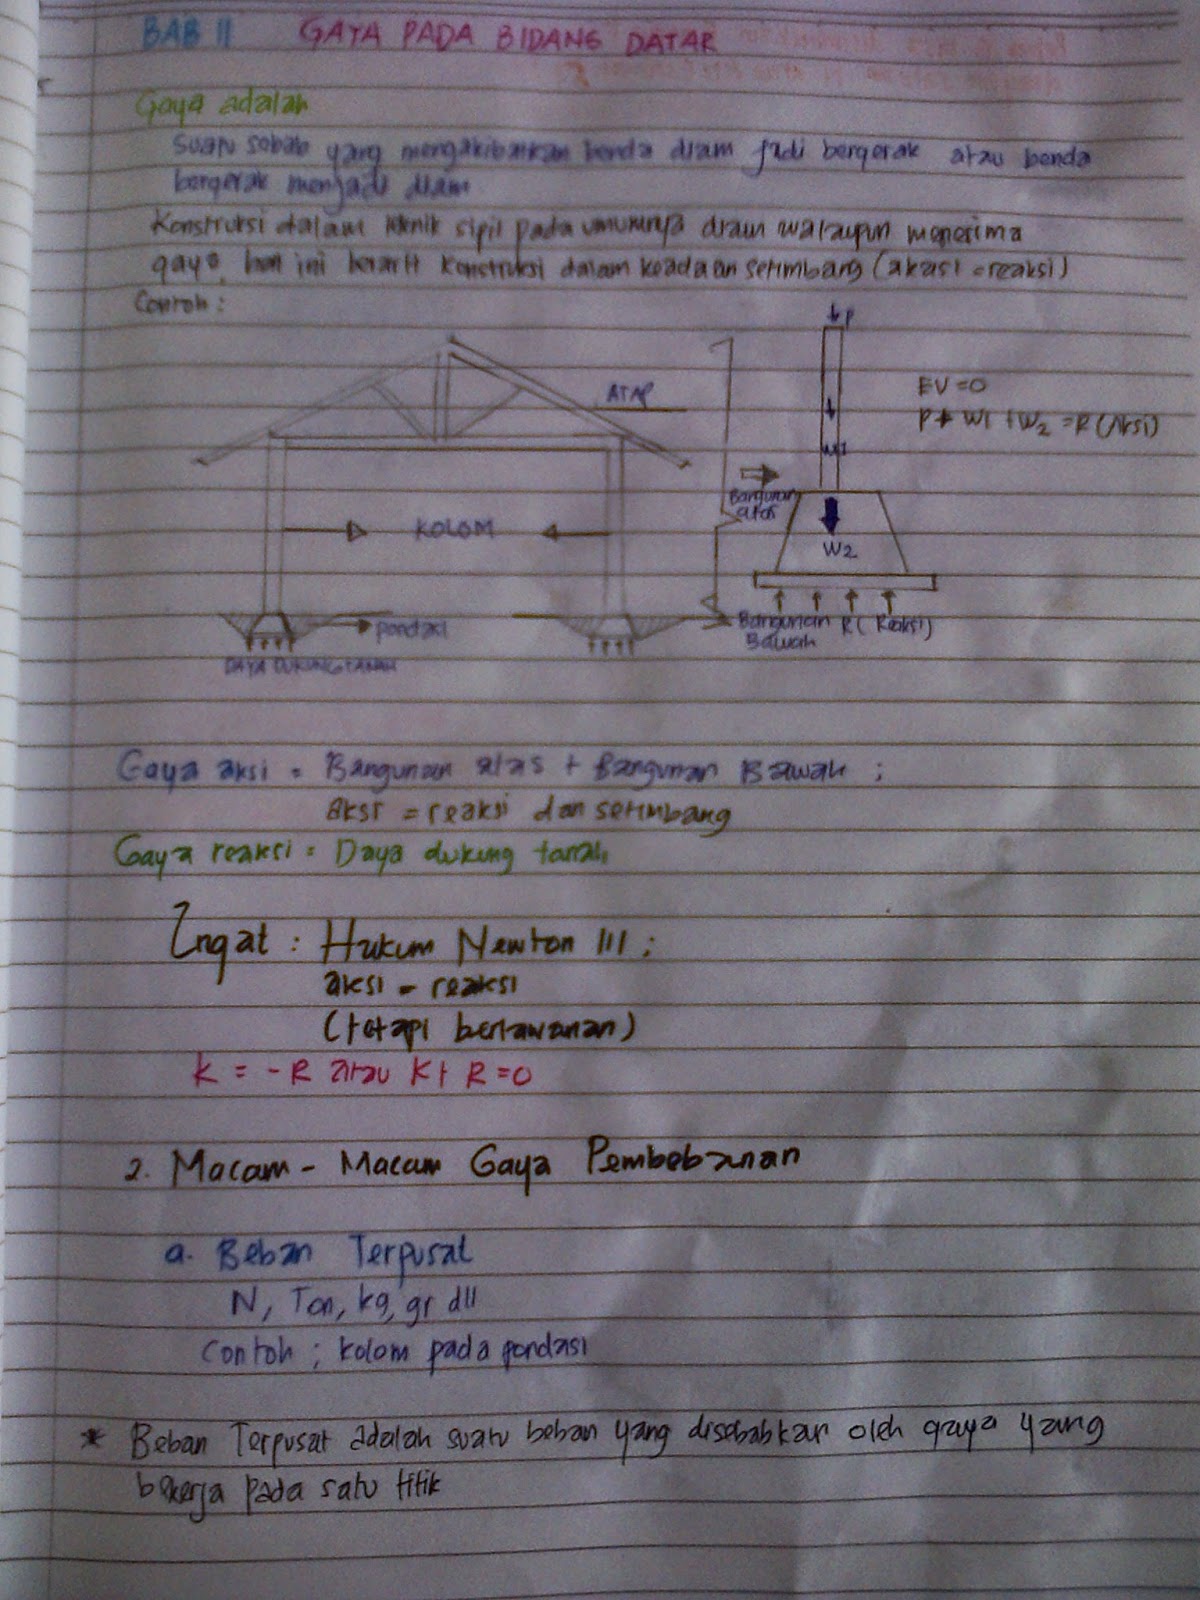 BAB II GAYA PADA BIDANG DATAR
Gaya adalah
suatu sebab yang mengakibatkan benda diam jadi bergerak atau benda
bergerak menjadi diam
Konstruksi dalam teknik sipil pada umumnya diam walaupun menerima
gaya, hal ini berarti konstruksi dalam keadaan setimbang (akasi = reaksi)
Contoh :
P
ATAP
EV = 0
P + W1 + W2 = R (Aksi)
W1
Bangunan
atas
KOLOM
W2
pondasi
Bangunan
Bawah
R (Reaksi)
DAYA DUKUNG TANAH
Gaya aksi = Bangunan atas + Bangunan Bawah ;
aksi = reaksi dan setimbang
Gaya reaksi = Daya dukung tanah
Ingat : Hukum Newton III ;
aksi = reaksi
(tetapi berlawanan)
K = -R atau K + R = 0
2. Macam - Macam Gaya Pembebanan
a. Beban Terpusat
N, Ton, kg, gr dll
Contoh ; kolom pada pondasi
* Beban Terpusat adalah suatu beban yang disebabkan oleh gaya yang
bekerja pada satu titik